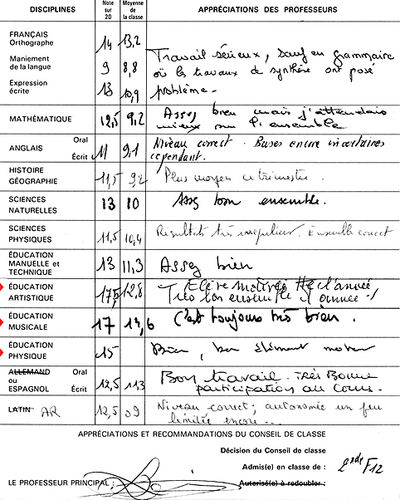 DISCIPLINES Note sur 20 Moyenne de la classe APPRÉCIATIONS DES PROFESSEURS
FRANÇAIS
Orthographe 14 13,2
Maniement de la langue 9 8,8
Expression écrite 13 10,9
Travail sérieux, sauf en grammaire
où les travaux de synthèse ont posé
problème.
MATHÉMATIQUE 12,5 9,2 Assez bien mais j'attendais
mieux sur l'ensemble
ANGLAIS Oral
Écrit 11 9,1 Niveau correct. Bases encore incertaines
cependant.
HISTOIRE
GÉOGRAPHIE 11,5 9,2 Plus moyen ce trimestre.
SCIENCES
NATURELLES 13 10 Assez bon ensemble.
SCIENCES
PHYSIQUES 11,5 10,4 Résultats très irréguliers. Ensemble correct
ÉDUCATION
MANUELLE et
TECHNIQUE 13 11,3 Assez bien
ÉDUCATION
ARTISTIQUE 17,5 12,8 Elève motivée
Très bon ensemble d'année !
ÉDUCATION
MUSICALE 17 14,6 C'est toujours très bien.
ÉDUCATION
PHYSIQUE 15 Bien, bon élément moteur
ALLEMAND Oral
ou
ESPAGNOL Écrit 12,5 11,3 Bon travail. Très Bonne
participation au cours.
LATIN AR 12,5 09 Niveau correct; autonomie un peu
limitée encore...
APPRÉCIATIONS ET RECOMMANDATIONS DU CONSEIL DE CLASSE
Décision du Conseil de classe
Admis(e) en classe de : 2nde F12
LE PROFESSEUR PRINCIPAL : Autorisé(e) à redoubler :